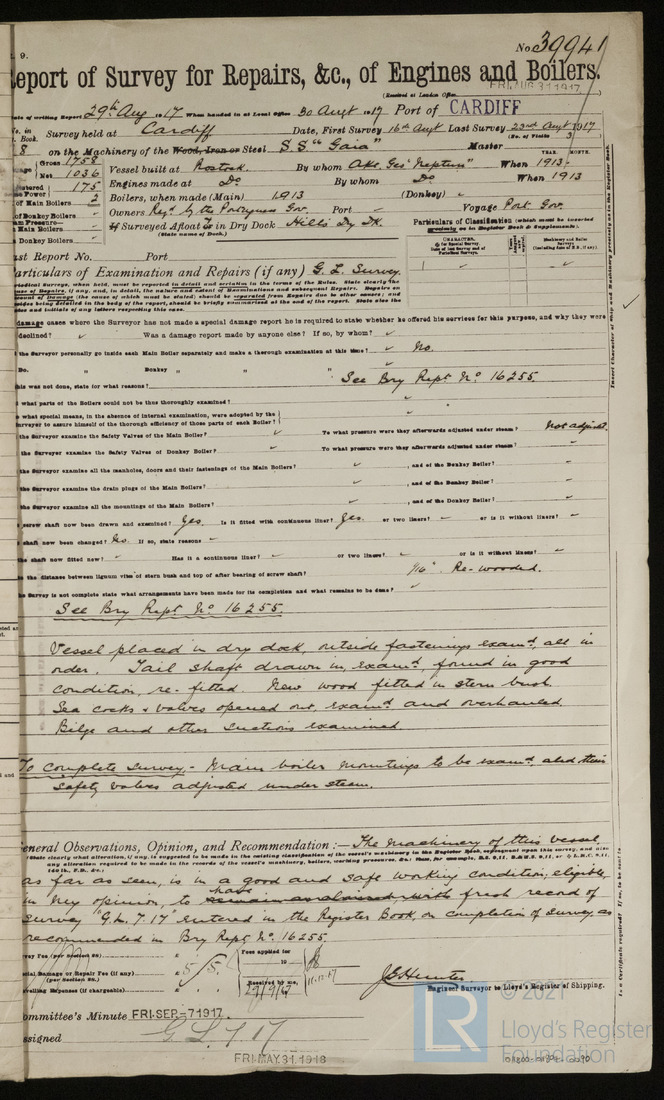 t. 9.
No 39941
eport of Survey for Repairs, &c., of Engines and Boilers.
(Received at London Office
FRI. AUG 31 1917
ate of writing Report 29th Aug 1917 When handed in at Local Office 30 Augt 1917 Port of CARDIFF
No. in Survey held at Cardiff Date, First Survey 16th Augt Last Survey 23rd Augt 1917
t. Book. (No. of Visits 3)
8 on the Machinery of the Wood, Iron or Steel SS "Gaia" Master
Gross 1758
Net 1036
Vessel built at Rostock. By whom Akt. Ges "Neptun" When 1913
YEAR. MONTH.
istered 175 Engines made at Do By whom Do When 1913
Power
of Main Boilers 2 Boilers, when made (Main) 1913 (Donkey)
of Donkey Boilers Owners Regd by the Portuguese Gov. Port Voyage Port Gov.
Main Boilers
Donkey Boilers
If Surveyed Afloat or in Dry Dock Hills Dry Dk.
(State name of Dock.)
Particulars of Classification (which must be inserted precisely as in Register Book & Supplements).
ast Report No. Port
articulars of Examination and Repairs (if any) G. L. Survey.
damage cases where the Surveyor has not made a special damage report he is required to state whether he offered his services for this purpose, and why they were
declined? Was a damage report made by anyone else? If so, by whom?
the Surveyor personally go inside each Main Boiler separately and make a thorough examination at this time? No.
Do. " Donkey " " "
this was not done, state for what reasons? See Bry Rept No 16255.
what parts of the Boilers could not be thoroughly examined?
what special means, in the absence of internal examination, were adopted by the
Surveyor to assure himself of the thorough efficiency of those parts of each Boiler?
the Surveyor examine the Safety Valves of the Main Boiler? To what pressure were they afterwards adjusted under steam? Not adjustd.
the Surveyor examine the Safety Valves of Donkey Boiler? To what pressure were they afterwards adjusted under steam?
the Surveyor examine all the manholes, doors and their fastenings of the Main Boilers? , and of the Donkey Boiler?
the Surveyor examine the drain plugs of the Main Boilers? , and of the Donkey Boiler?
the Surveyor examine all the mountings of the Main Boilers? , and of the Donkey Boiler?
screw shaft now been drawn and examined? Yes. Is it fitted with continuous liner? Yes. or two liners? or is it without liners?
shaft now been changed? No. If so, state reasons
the shaft now fitted new? Has it a continuous liner? or two liners? or is it without liners?
the distance between lignum vitæ of stern bush and top of after bearing of screw shaft? 1/16" Re-wooded.
he Survey is not complete state what arrangements have been made for its completion and what remains to be done?
See Bry Rept No 16255.
Vessel placed in dry dock, outside fastenings examd, all in
order. Tail shaft drawn in, examd, found in good
condition, re-fitted. New wood fitted in stern bush.
Sea cocks & valves opened out, examd and overhauled.
Bilge and other suctions examined
To complete survey:- Main boiler mountings to be examd, and their
safety valves adjusted under steam.
eneral Observations, Opinion, and Recommendation :— The machinery of this vessel,
(State clearly what alteration, if any, is suggested to be made in the existing classification of the vessel's machinery in the Register Book, consequent upon this survey, and also
as far as seen, is in a good and safe working condition, eligible,
in my opinion, to have remain as classed, with fresh record of
survey "G.L. 7.17" entered in the Register Book, on completion of survey, as
recommended in Bry Rept No. 16255.
vey Fee (per Section 28)
ecial Damage or Repair Fee (if any) £ 5/5/.
(per Section 28.)
velling Expenses (if chargeable)
Fees applied for
19
Received by me,
29/9/17
J E Hunter
Engineer Surveyor to Lloyd's Register of Shipping.
ommittee's Minute FRI. SEP. -7 1917.
ssigned G L 7 17
FRI. MAY. 31. 1918
Insert Character of Ship and Machinery precisely as in the Register Book.
Is a Certificate required? If so, to be sent to
LR
© 2021
Lloyd's Register
Foundation